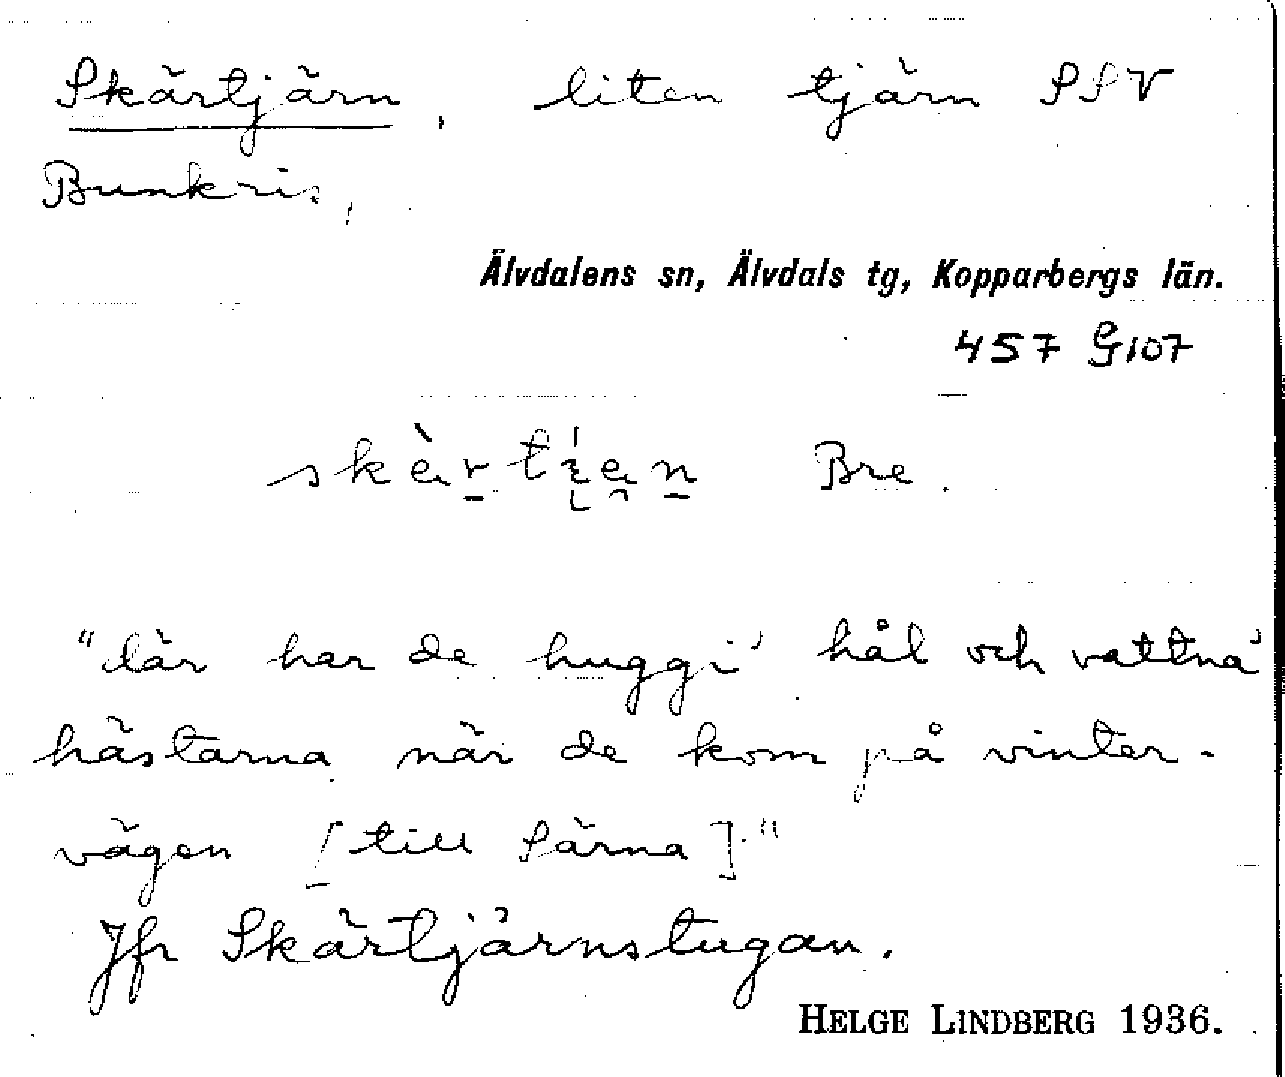 Skärtjärn, liten tjärn SSV
Bunkris,
Älvdalens sn, Älvdals tg, Kopparbergs län.
457 G107
Bre.
"där har de huggi' hål och vattna'
hästarna när de kom på vinter-
vägen [till Särna]."
Jfr Skärtjärnstugan.
HELGE LINDBERG 1936.